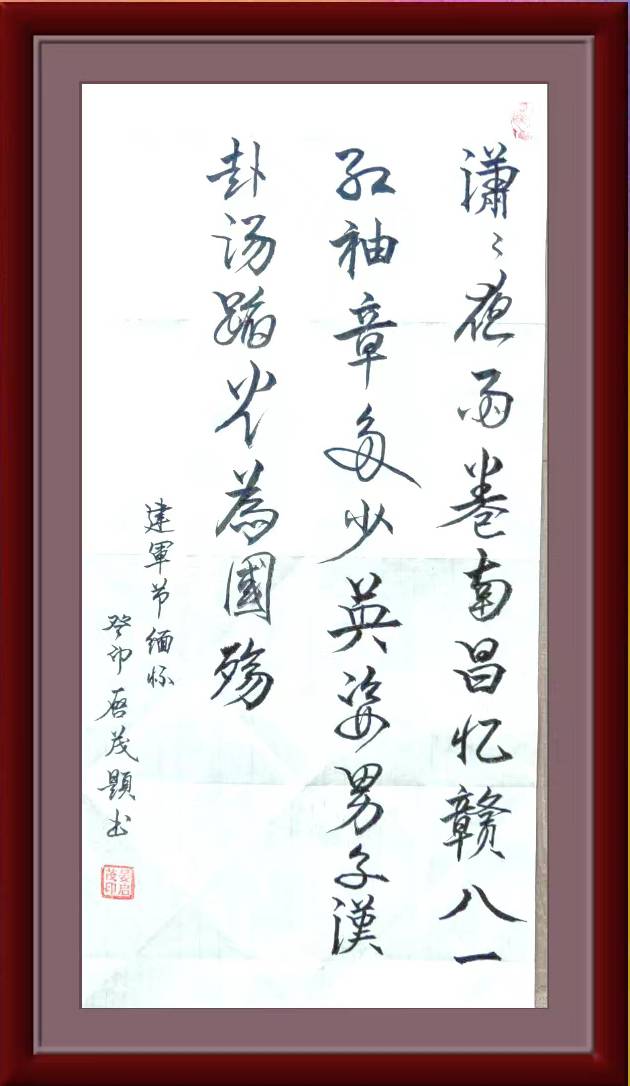 潇〻夜雨卷南昌忆赣八一
红袖章多少英姿男子汉
赴汤蹈火为国殇
建军节缅怀
癸卯启茂题书
晏启茂印